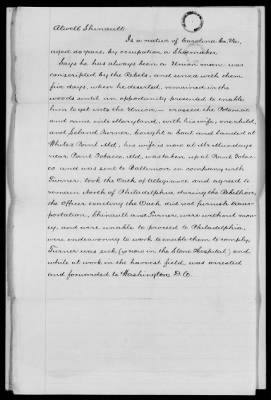 Atwell Shinault
Is a native of Caroline Co, Va,
aged 40 years, by occupation, a Shoemaker
Says he has always been a Union man, was
conscripted by the Rebels, and served with them
five days, when he deserted, remained in the
woods until an opportunity presented to enable
him to get into the Union — crossed the Potomac
and came into Maryland, with his wife, one child,
and Leland Turner, bought a boat and landed at
White's Point Md, his wife is now at Mr Mundays
near Port Tobacco, Md, was taken up at Point Tobac-
co and was sent to Baltimore in company with
Turner, took the Oath of Allegiance and agreed to
remain North of Philadelphia, during the Rebellion,
the Officer exacting the Oath did not furnish trans-
portation, Shinault and Turner were without mon-
ey, and were unable to proceed to Philadelphia,
were endeavoring to work to enable them to comply,
Turner was sick (is now in the Stone Hospital) and
while at work in the harvest field, was arrested
and forwarded to Washington D.C.